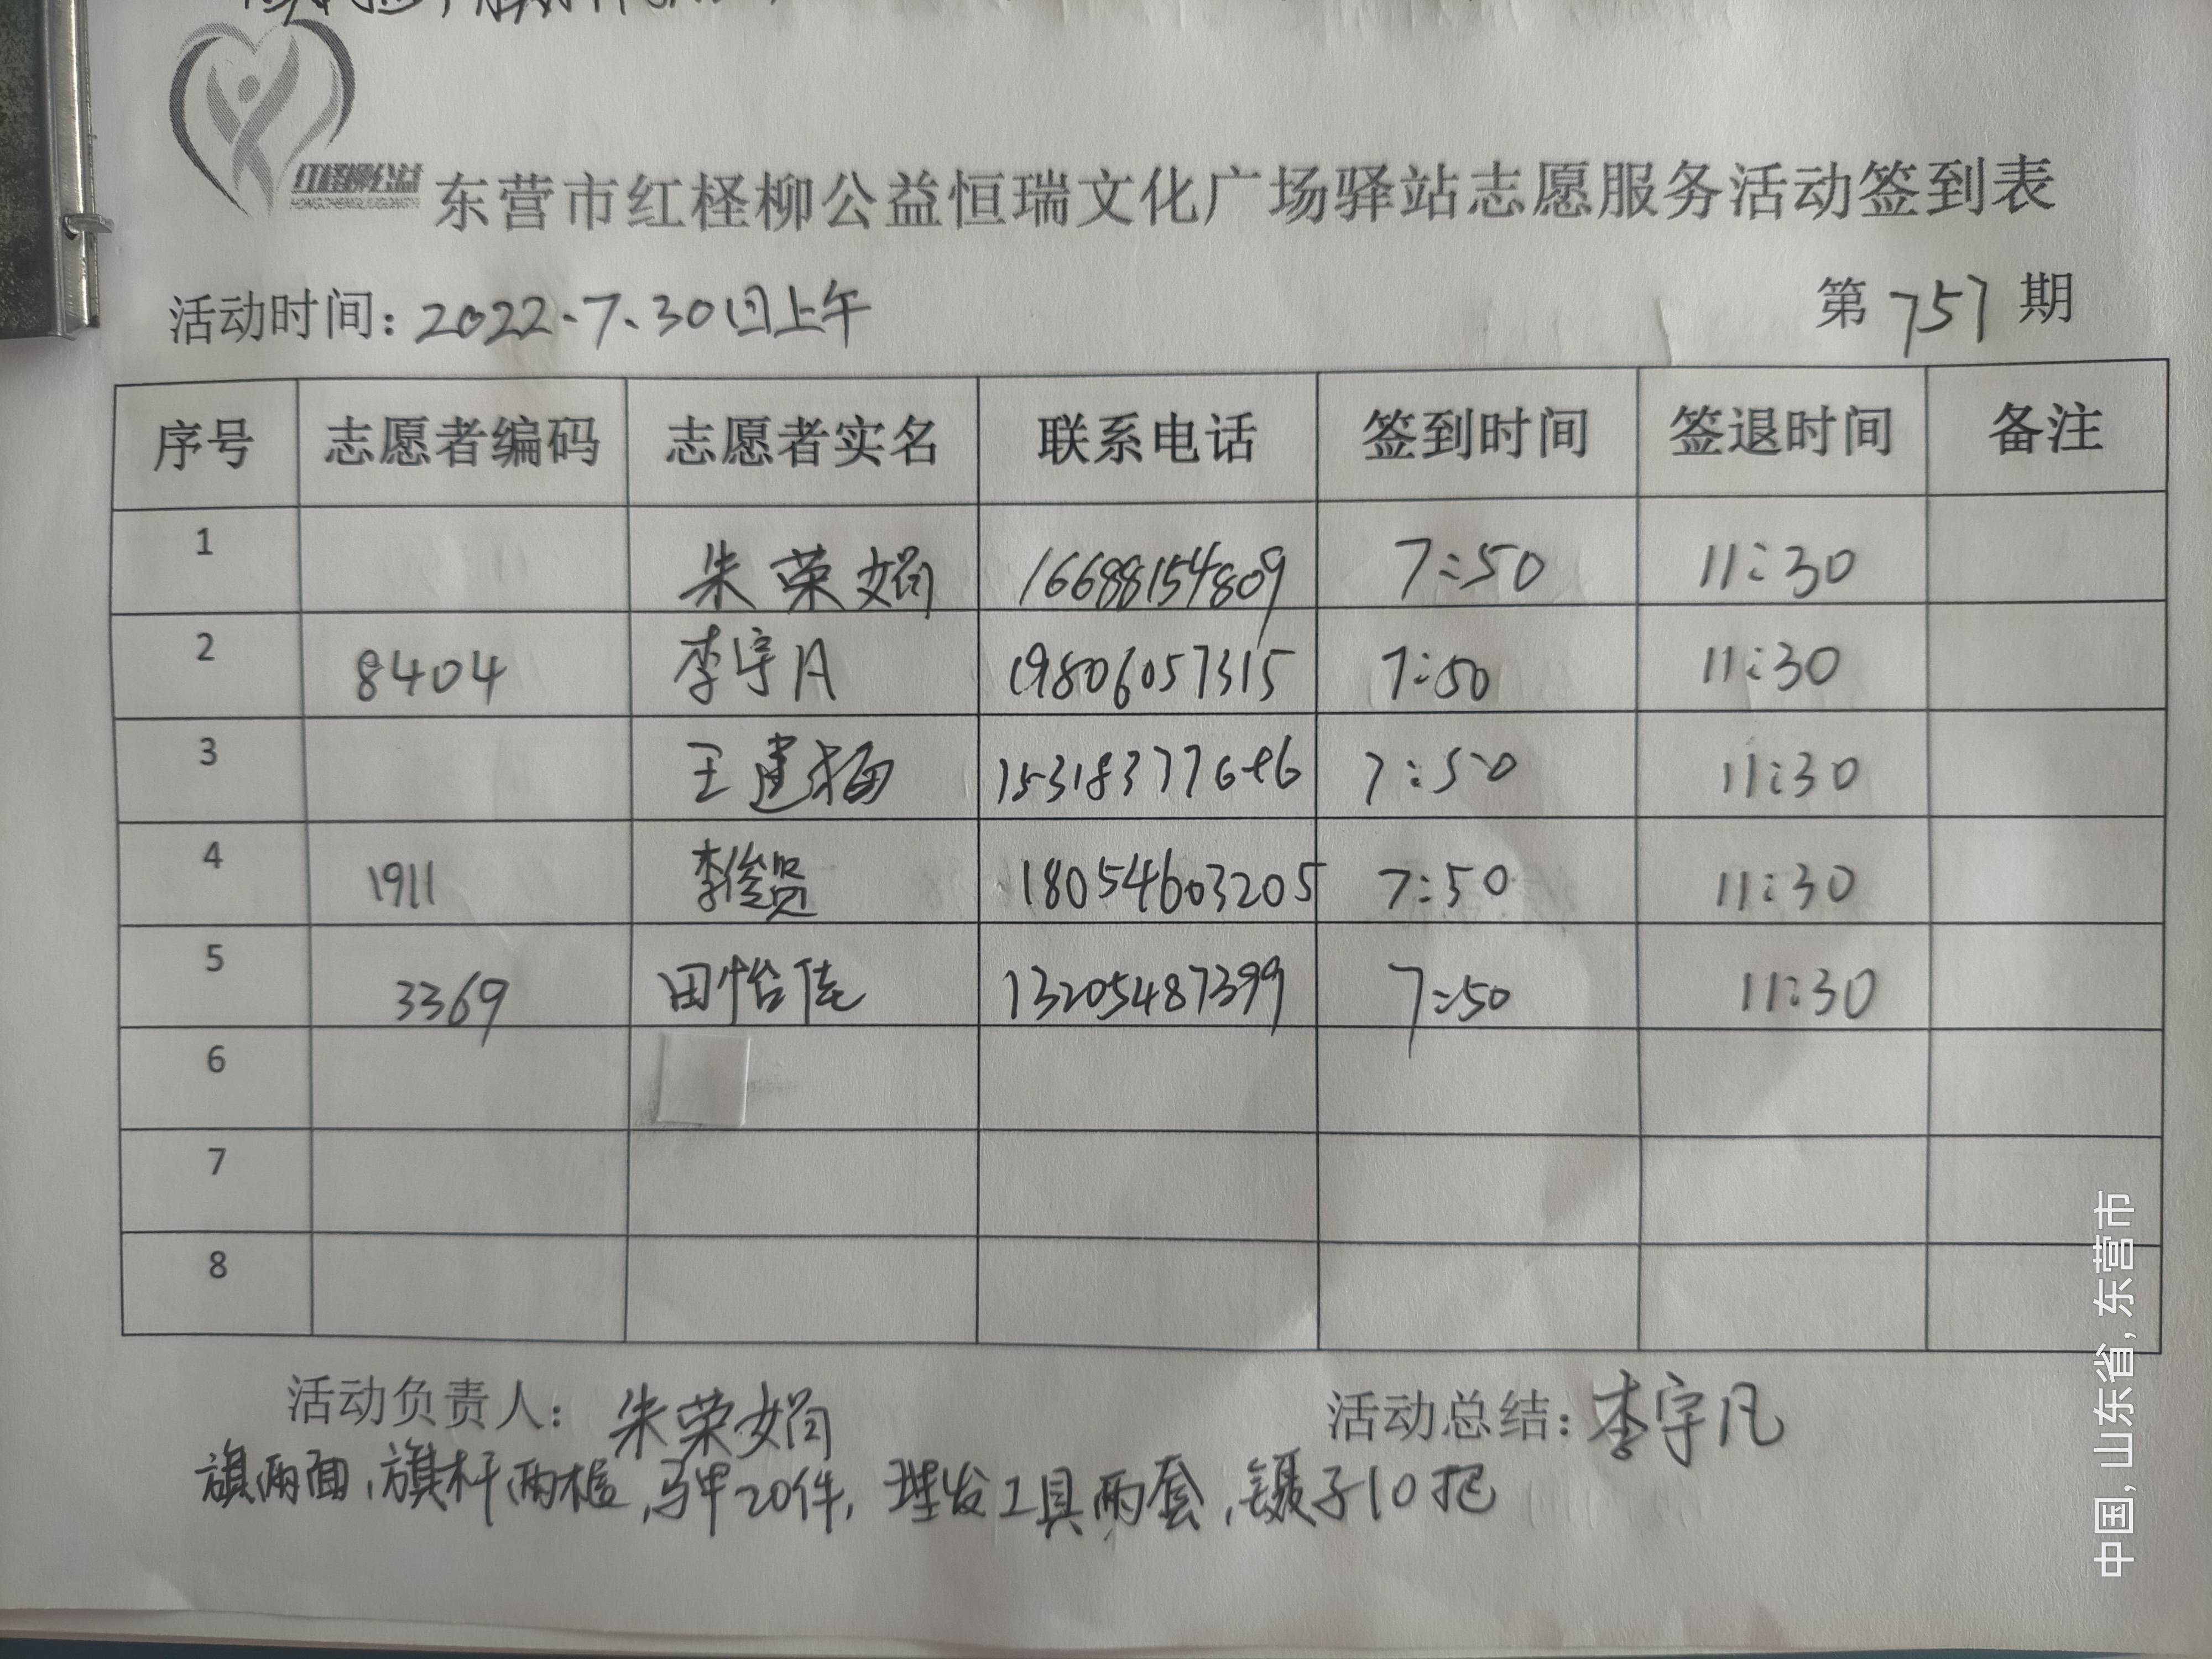 红柽柳公益
东营市红柽柳公益恒瑞文化广场驿站志愿服务活动签到表
活动时间：2022.7.30日上午 第757期
序号 志愿者编码 志愿者实名 联系电话 签到时间 签退时间 备注
1 朱荣娟 16688154809 7:50 11:30
2 8404 李宇凡 19806057315 7:50 11:30
3 王建梅 15318377646 7:50 11:30
4 1911 李俊贤 18054603205 7:50 11:30
5 3369 田怡佳 13205487399 7:50 11:30
6
7
8
活动负责人：朱荣娟 活动总结：李宇凡
旗两面，旗杆两根，马甲20件，理发工具两套，镊子10把
中国，山东省，东营市